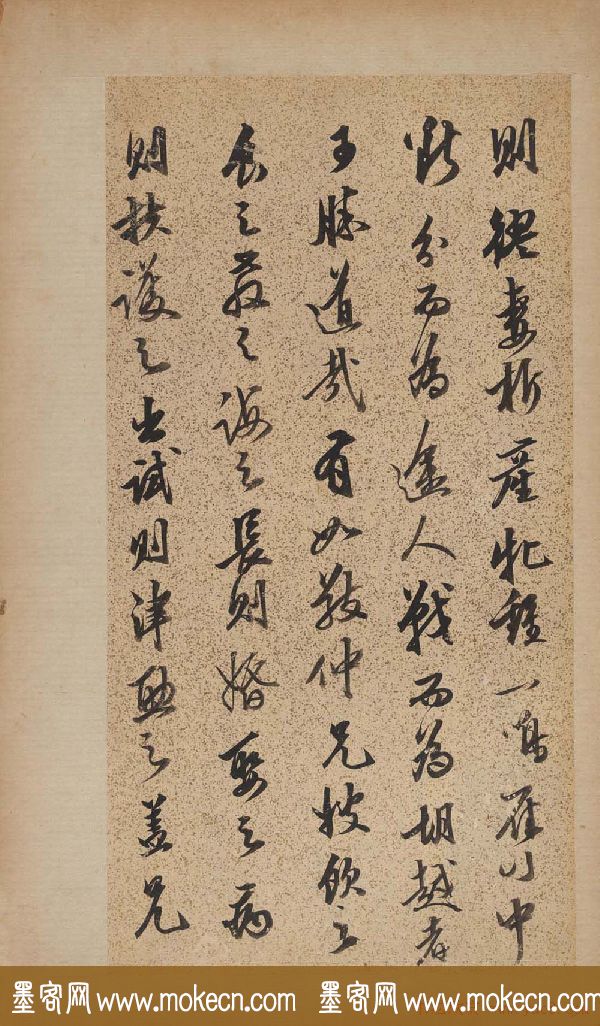 則緩妻析產牝雞一鳴雁行中
斷分而為途人戰而為胡越者
可勝道哉有如敬仲兄嫂飲之
食之教之誨之長則婚娶之病
則扶護之出試則津
之蓋兄
墨客网 www.mokecn.com 墨客网 www.mokecn.com